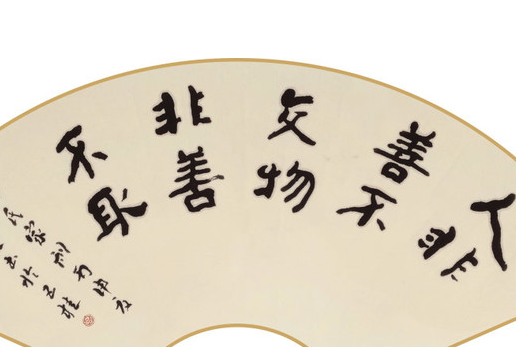 人非
善不
交物
非善
不取